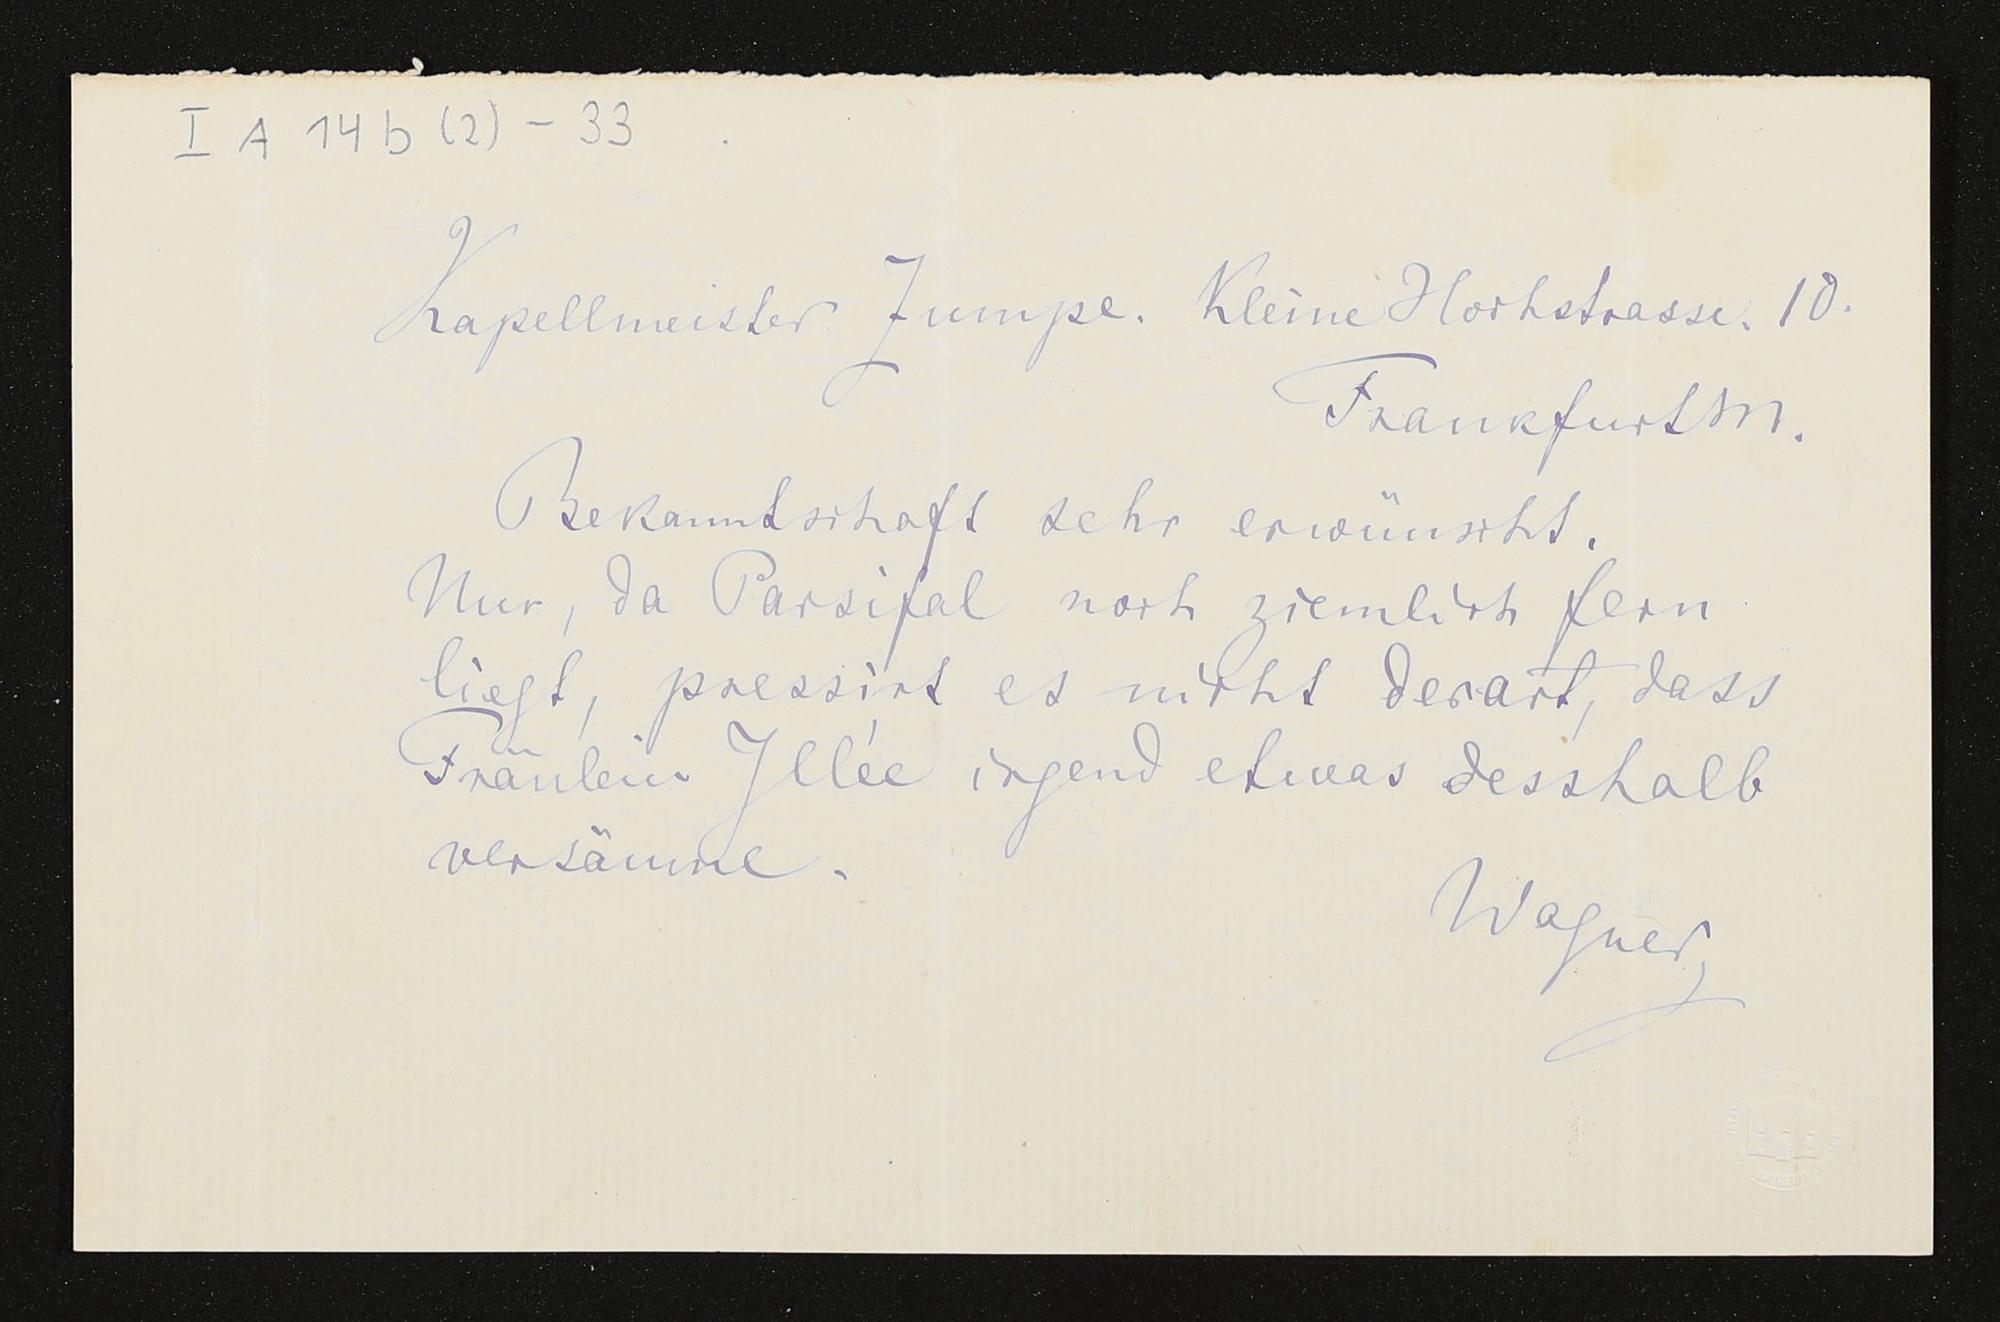 I A 14 b (2) - 33
Kapellmeister Jumpe. Kleine Hochstrasse. 10.
Frankfurt M.
Bekanntschaft sehr erwünscht.
Nur, da Parsifal noch ziemlich fern
liegt, pressirt es nicht derart, dass
Fräulein Jllée irgend etwas desshalb
versäume.
Wagner